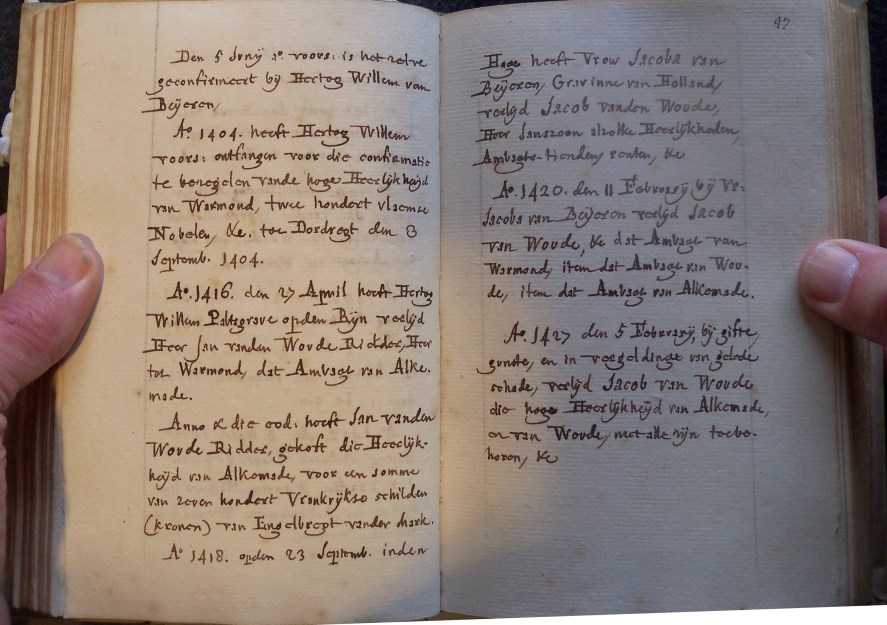 Den 5 Junij Ao. voors: is het zelve
geconfirmeert bij Hertog Willem van
Beijeren,
Ao. 1404. heeft Hertog Willem
voors: ontfangen voor die confirmatie
te bezegelen vande hoge Heerlijkheijd
van Warmond, twee hondert vlaemse
Nobelen, &c. tot Dordregt den 8
Septemb. 1404.
Ao. 1416. den 27 April heeft Hertog
Willem Paltsgrave opden Rijn verlijd
Heer Jan vanden Woude Ridder, Heer
tot Warmond, dat Ambagt van Alke-
made.
Anno & die eod. heeft Jan vanden
Woude Ridder, gekoft die Heerlijk-
heijd van Alkemade, voor een somme
van zeven hondert Vrankrijkse schilden
(kronen) van Engelbregt vander Mark.
Ao 1418. opden 23 Septemb. inden
47
Hage heeft Vrow Jacoba van
Beijeren, Gravinne van Holland,
verlijd Jacob vanden Woude,
Heer Janszoon alzulke Heerlijkheden,
Ambagts-tienden, renten, &c
Ao. 1420. den 11 Februarij bij Vr:
Jacoba van Beijeren verlijd Jacob
van Woude, &c dat Ambagt van
Warmond, item dat Ambagt van Wou-
de, item dat Ambagt van Alkemade.
Ao. 1427 den 5 Februarij, bij gifte,
gunste, en in vergeldinge van gelede
schade, verlijd Jacob van Woude
die hoge Heerlijkheijd van Alkemade,
en van Woude, met alle zijn toebe-
horen, &c